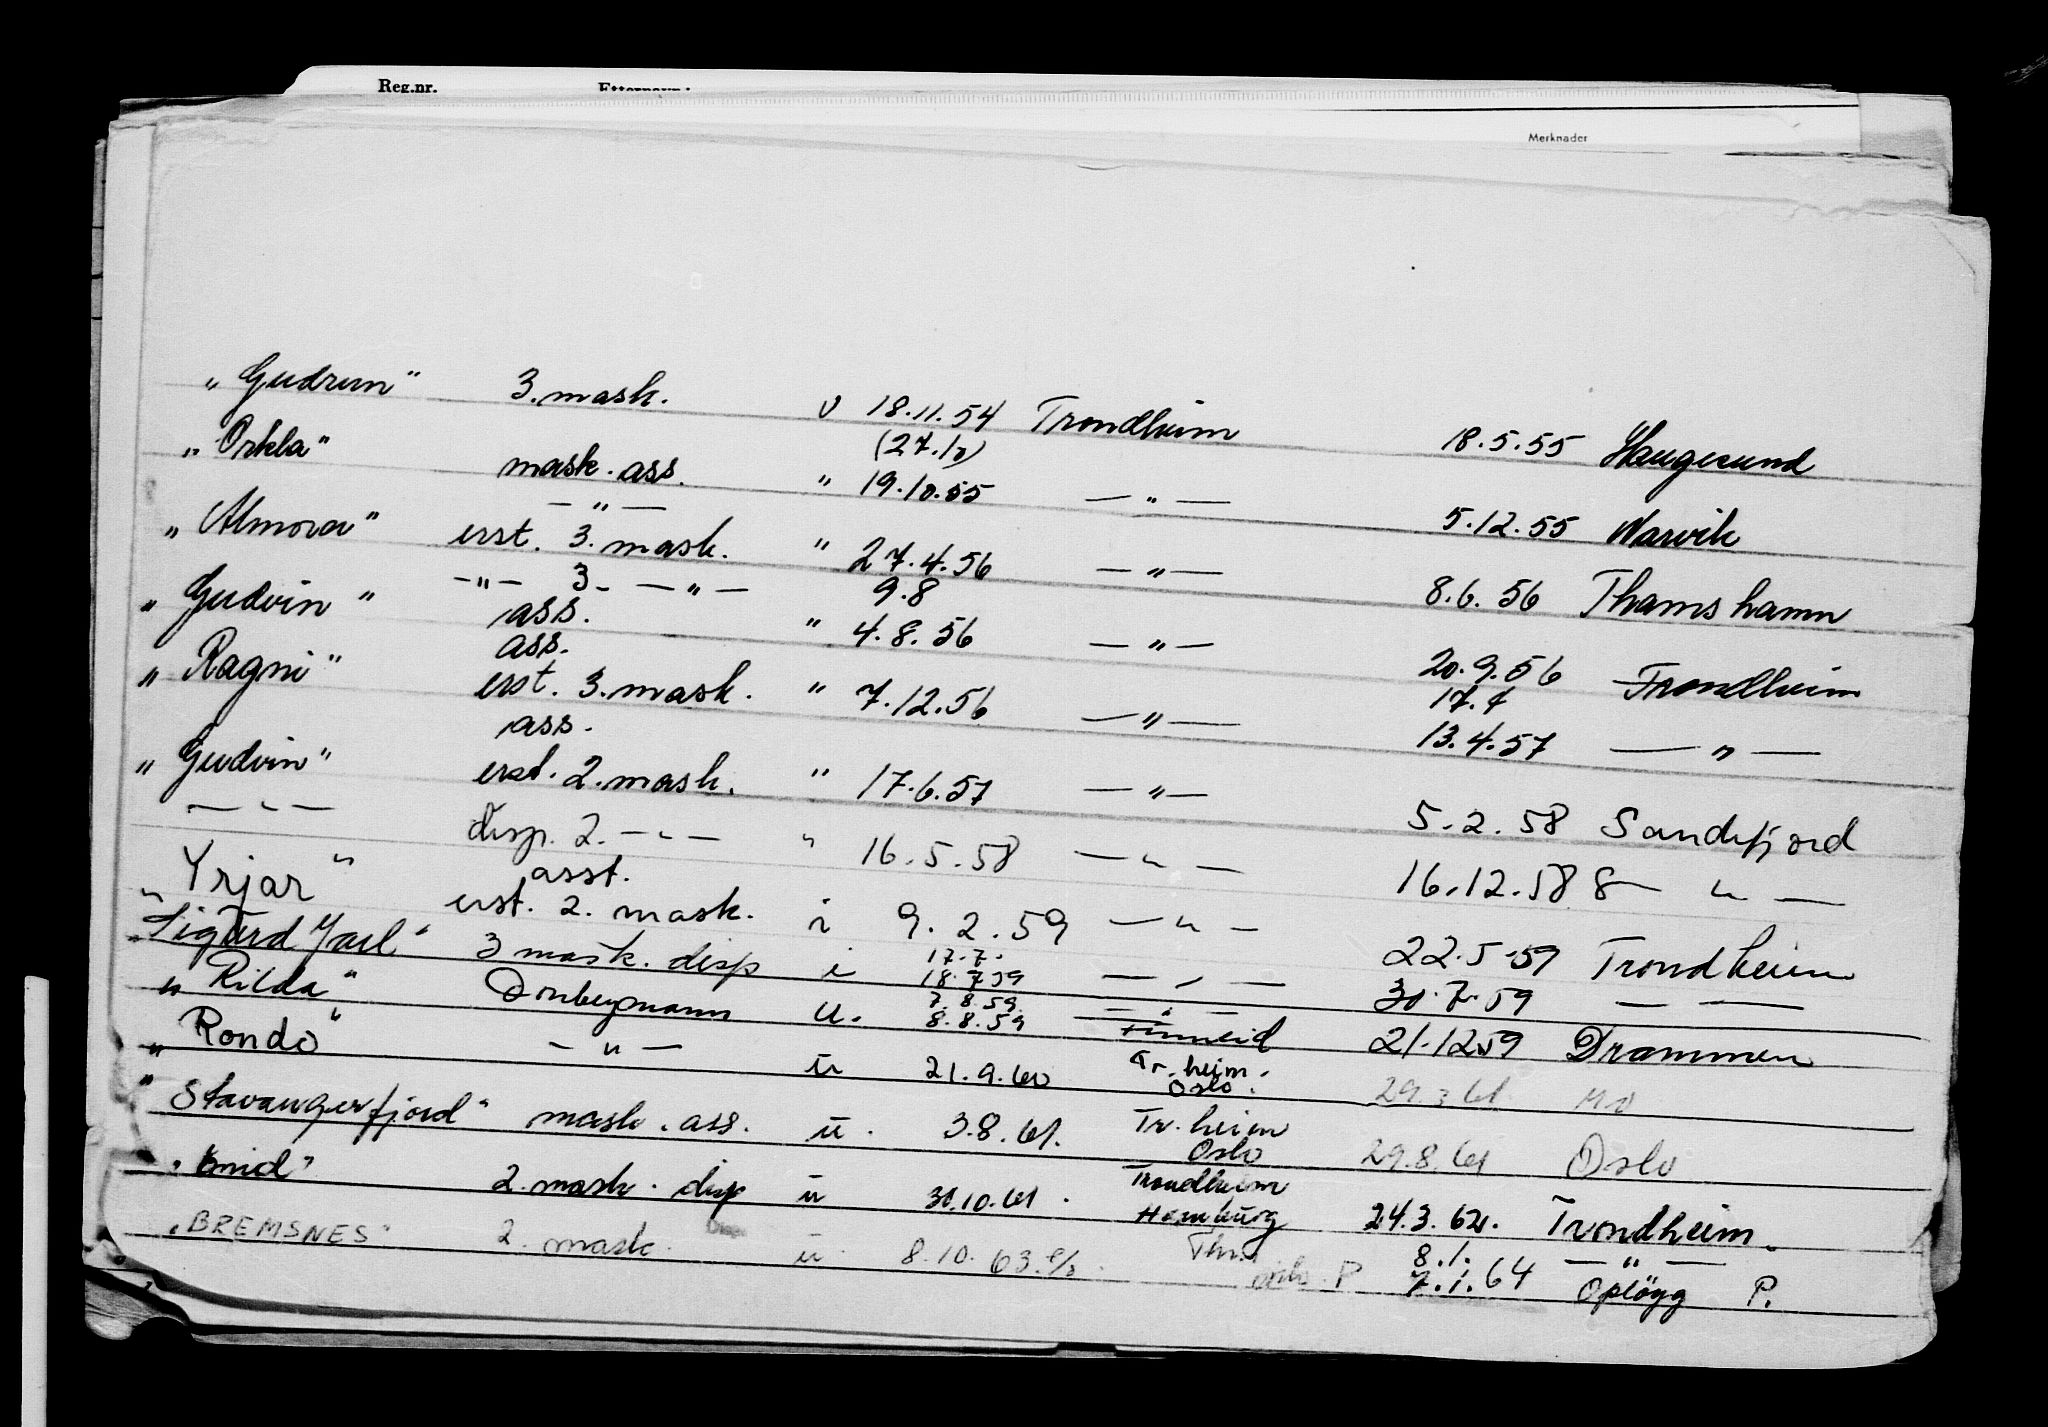 Reg.nr.
Merknader
„Gudrun" 3. mask. v 18.11.54 Trondheim 18.5.55 Haugesund
(27.10)
„Orkla" mask. ass. " 19.10.55 — " — 5.12.55 Narvik
— " —
„Almora" erst. 3. mask. " 27.4.56 — " — 8.6.56 Thamshamn
— " — 3. — " — 9.8
„Gudvin" ass. " 4.8.56 — " — 20.9.56 Trondheim
ass. 17.4
„Ragni" erst. 3. mask. " 7.12.56 — " — 13.4.57 — " —
ass.
„Gudvin" erst. 2. mask. " 17.6.57 — " — 5.2.58 Sandefjord
— " — disp. 2. — " — " 16.5.58 — " — 16.12.58 — " —
asst.
„Yrjar" erst. 2. mask. i 9.2.59 — " — 22.5.59 Trondheim
17.7.
„Sigurd Jarl" 3 mask. disp i 18.7.59 — " — 30.7.59 — —
7.8.59 — " —
„Rilda" Donkeymann u. 8.8.59 21.12.59 Drammen
„Rondo" — " — u 21.9.60 Tr.heim. 29.3.61 Mo
Oslo.
„Stavangerfjord" mask. ass. u. 3.8.61. Tr.heim 29.8.61 Oslo
Oslo
„Enid" 2. mask. disp u 31.10.61. Trondheim 24.3.62. Trondheim.
Hamburg
8.1. — " —
„BREMSNES" 2. mask. u 8.10.63. P 7.1.64 Opløgg P.